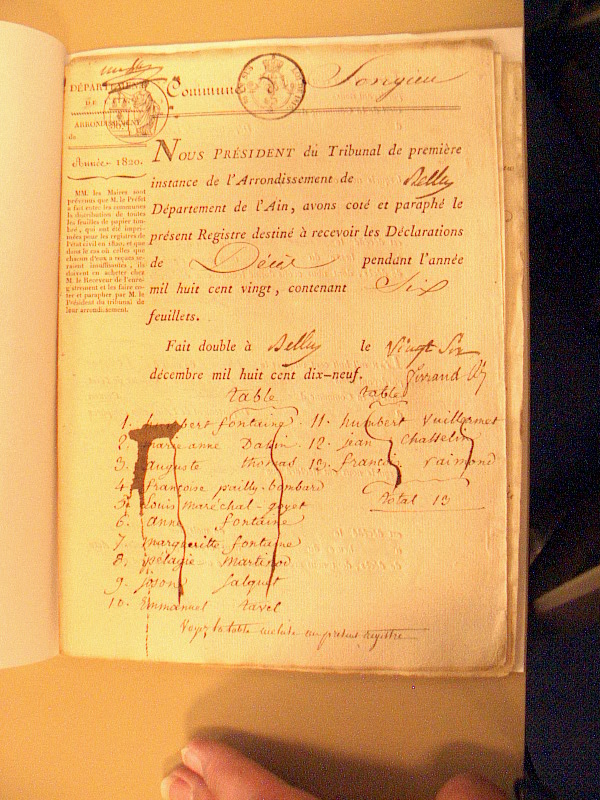 DÉPARTEMENT
DE
Commune Songieu
ARRONDISSEMENT
de
Année 1820.
MM. les Maires sont
prévenus que M. le Préfet
a fait entre les communes
la distribution de toutes
les feuilles de papier tim-
bré, qui ont été impri-
mées pour les registres de
l'état civil en 1820, et que
dans le cas où celles que
chacun d'eux a reçues se-
raient insuffisantes, ils
doivent en acheter chez
M. le Receveur de l'enre-
gistrement et les faire co-
ter et parapher par M. le
Président du tribunal de
leur arrondissement.
NOUS PRÉSIDENT du Tribunal de première
instance de l'Arrondissement de Belley
Département de l'Ain, avons coté et paraphé le
présent Registre destiné à recevoir les Déclarations
de Décès pendant l'année
mil huit cent vingt, contenant Six
feuillets.
Fait double à Belley le Vingt Six
décembre mil huit cent dix-neuf.
table
1. humbert fontaine
2. marie anne Dabin
3. auguste thomas
4. françoise pailly-bombard
5. Louis maréchal-goyet
6. anne fontaine
7. marguerite fontaine
8. pélagie martinod
9. Joson Jalquet
10. Emmanuel tavel
table
11. humbert vuillermet
12. jean Chasselin
13. françois raimond
total 13
Voyez la table incluse au présent registre